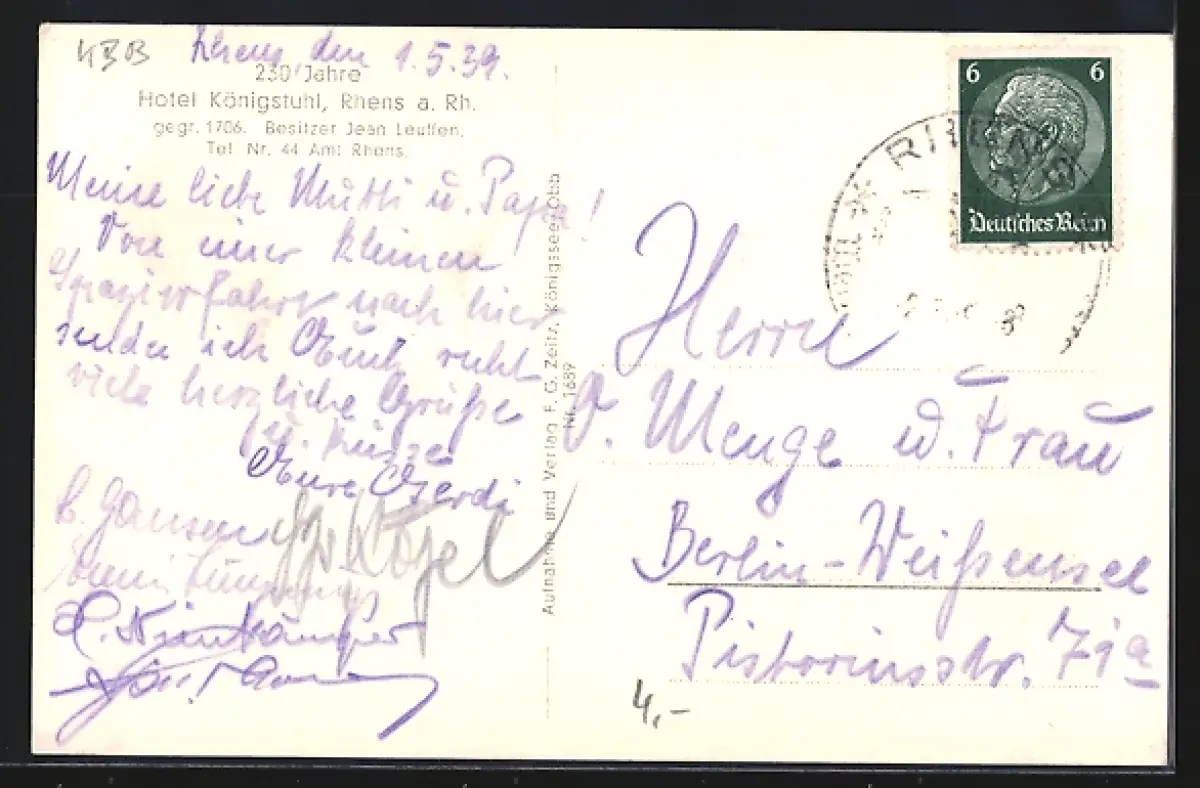 KBB
Rhens, den 1.5.39.
230 Jahre
Hotel Königstuhl, Rhens a. Rh.
gegr. 1706. Besitzer Jean Leuffen.
Tel. Nr. 44 Amt Rhens.
Meine liebe Mutti u. Papa!
Von einer kleinen
Spazierfahrt nach hier
sende ich Euch recht
viele herzliche Grüße
u. Küsse
Eure Gerdi
Aufnahme und Verlag F. G. Zeitz, Königssee/Obb
Nr. 1689
6 6
Deutsches Reich
Herrn
O. Menge u. Frau
Berlin-Weißensee
Pistoriusstr. 71a
4,-